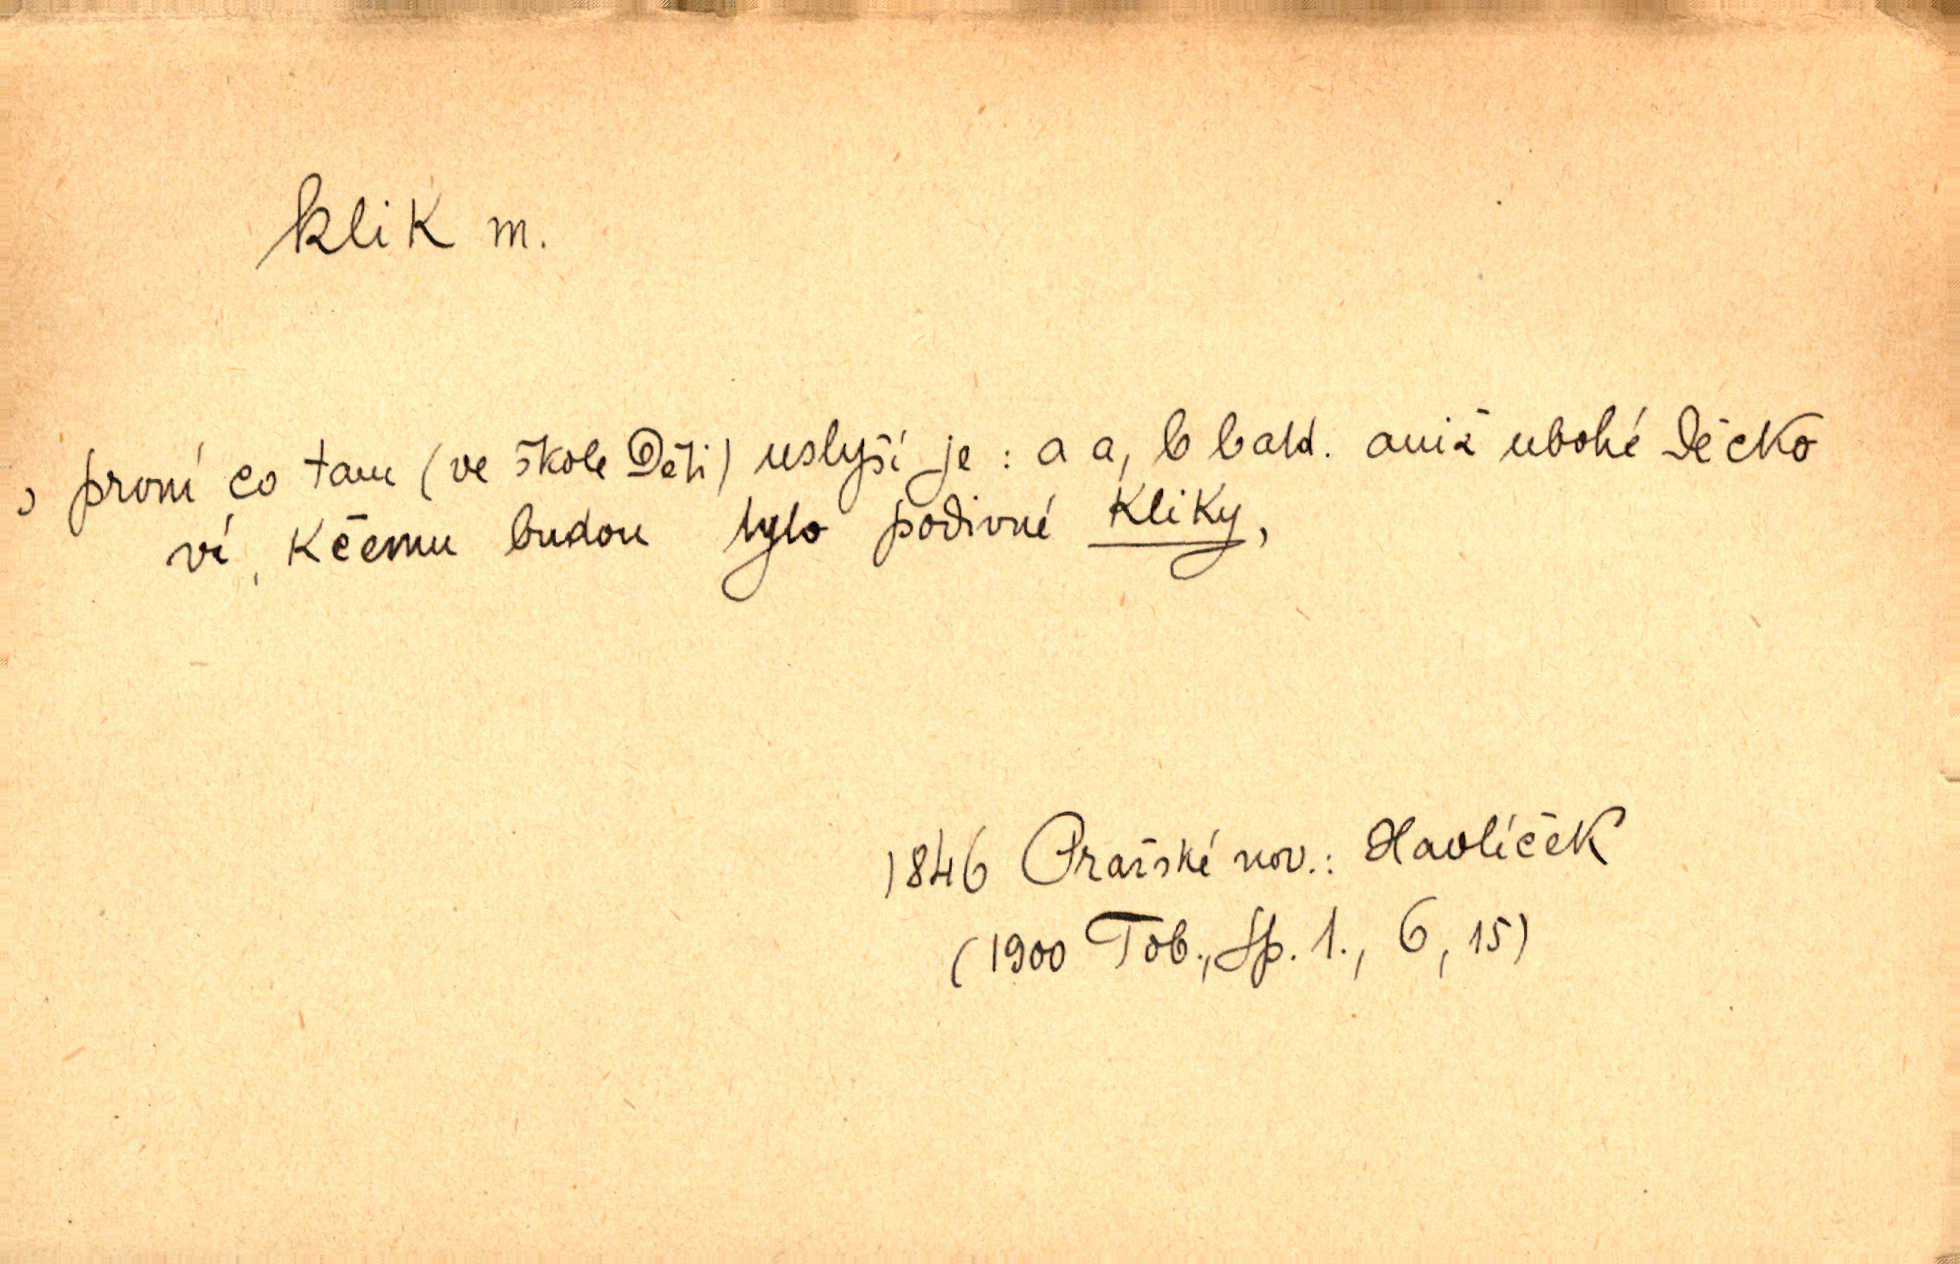 klik m.
, první co tam (ve škole Děti) uslyší je : a a, b b atd. aniž ubohé děcko
ví, kčemu budou tyto podivné kliky,
1846 Pražské nov.: Havlíček
(1900 Tob., Sp. 1., 6, 15)